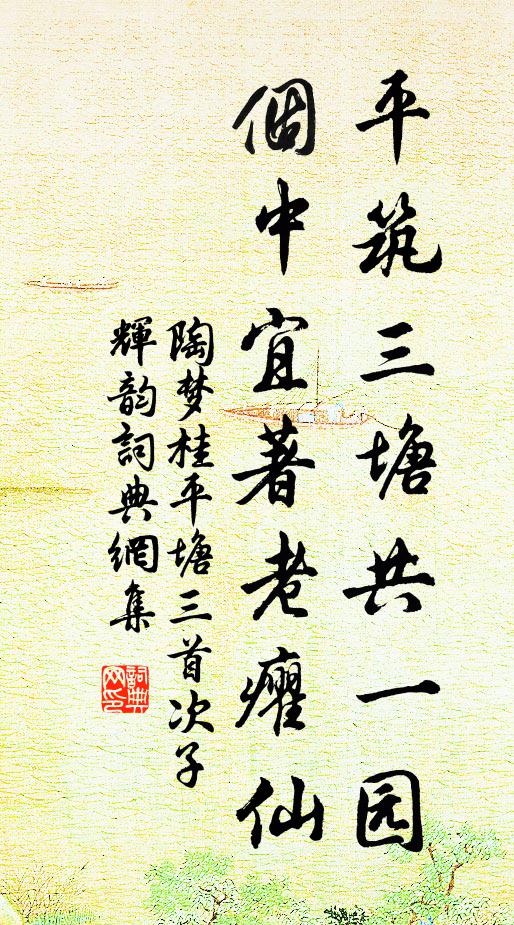 平筑三塘共一园
個中宜著老癯仙
陶梦桂平塘三首次子
輝韵詞典網集
詞典
网印